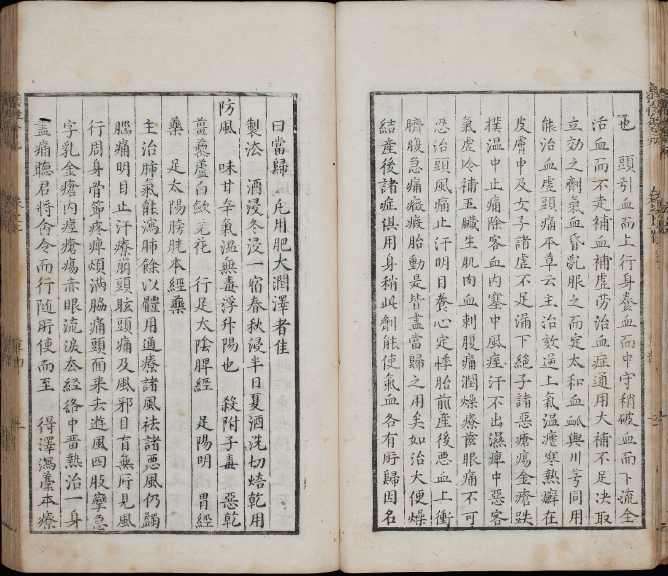 也 頭引血而上行身養血而中守稍破血而下流全
活血而不走補血補虚劳治血症通用大補不足决取
立効之劑氣血昏亂服之而定太和血衇與川芎同用
能治血虚頭痛本草云主治欬逆上氣温瘧寒熱癬在
皮膚中及女子諸虚不足漏下絶子諸惡瘡瘍金瘡跌
撲温中止痛除客血内塞中風痙汗不出濕痺中惡客
氣虚冷補五臟生肌肉血刺腹痛潤燥療䧟眼痛不可
忍治頭風痛止汗明目養心定悸胎前産後惡血上衝
臍腹急痛癥癥胎動是皆盡當歸之用矣如治大便燥
結産後諸症俱用身稍此劑能使氣血各有所歸因名
曰當歸 凢用肥大潤澤者佳
製法 酒浸冬浸一宿春秋浸半日夏酒洗切焙乾用
防風 味甘辛氣温無毒浮升陽也 殺附子毒 惡乾
薑藜蘆白歛芫花 行足太陰脾經 足陽明 胃經
藥 足太陽膀胱本經藥
主治肺氣能瀉肺餘以體用通療諸風祛諸惡風仍蠲
腦痛明目止汗療崩頭眩頭痛及風邪目盲無所見風
行周身骨節疼痺煩滿脇痛頭面来去遊風四股攣急
字乳金瘡内痙瘡瘍赤眼流淚叅經絡中畱熱治一身
盡痛聽君將命令而行随所使而至 得澤瀉藁本療